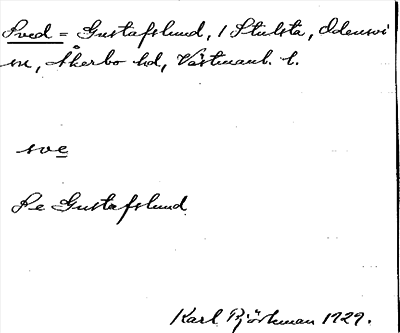 Sved = Gustafslund, 1 Stulsta, Odensvi
sn, Åkerbo hd, Västmanl. l.
sve
Se Gustafslund
Karl Björkman 1929.